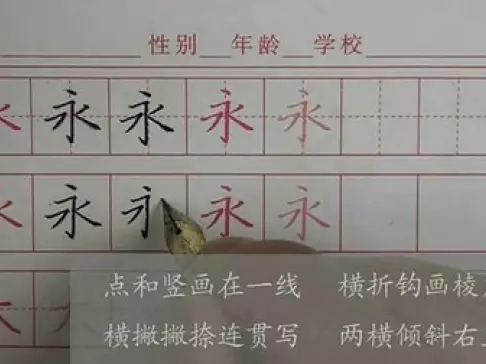 性别 年龄 学校
永 永 永 永
永 永 永
点和竖画在一线 横折钩画棱
横撇撇捺连贯写 两横倾斜右